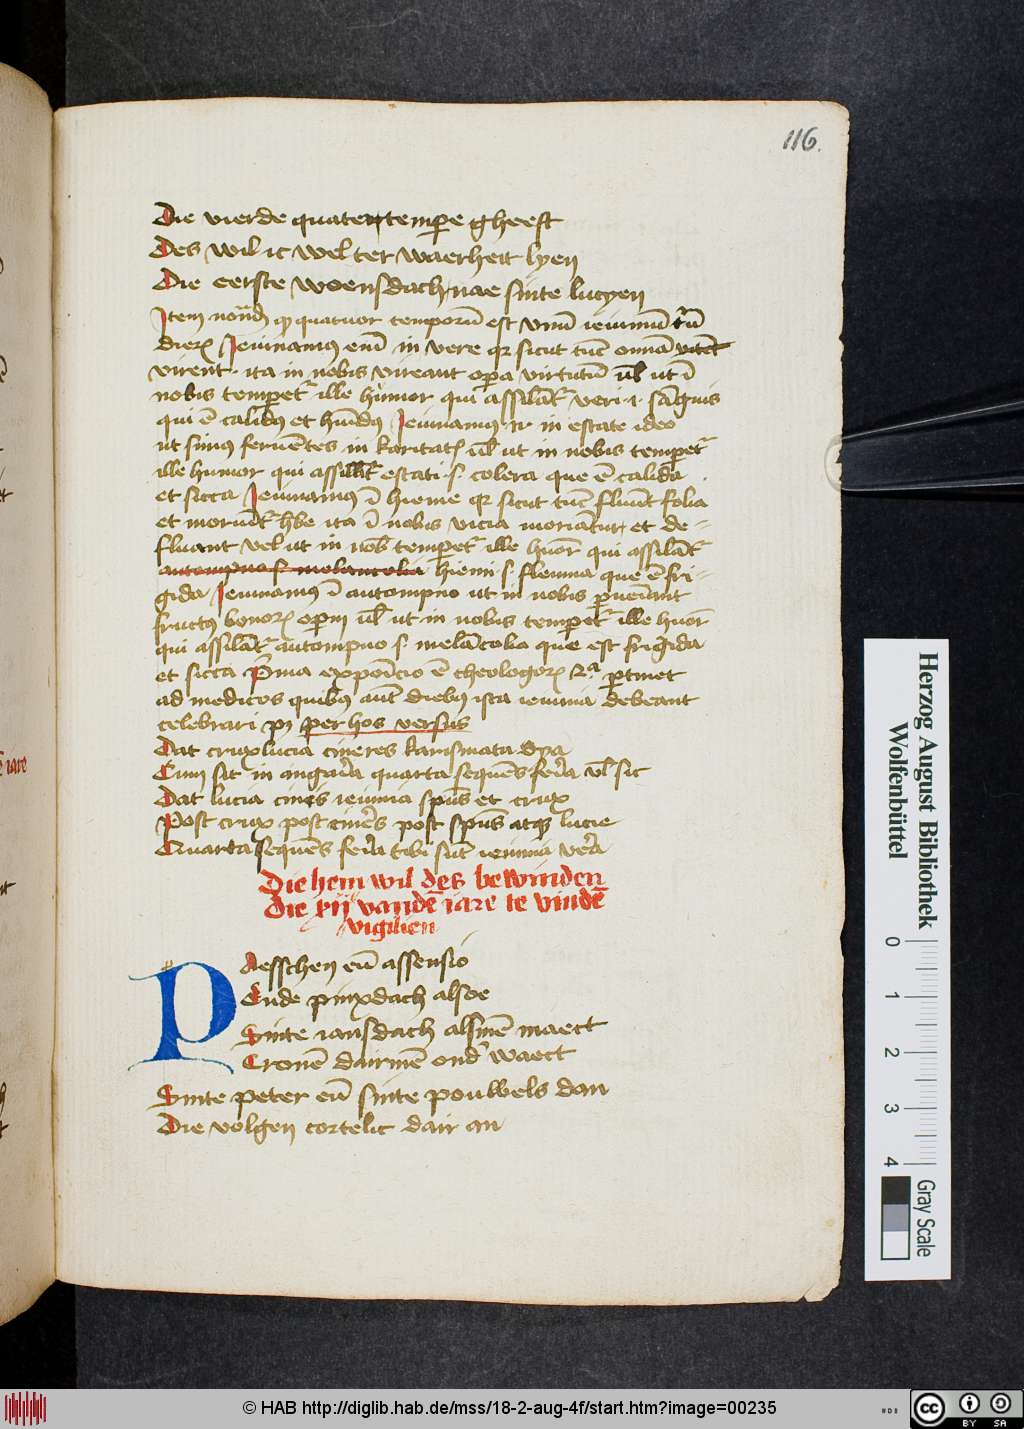 116.
Die vierde quatertempere gheeft
Des wil ic wel ter waerheit lyen
Die eerste woensdach nae sinte lucyen
Item notandū qꝫ quatuor temporū est vnū ieiuniū triū
dierꝝ Ieiunamus enī in vere qr sicut tūc omnia
virent · ita in nobis vireant opa virtutū vl ut ī
nobis temperet' ille humor qui assilat' veri · s · sāguis
qui ē calidus et huidus Ieiunamus in estate ideo
ut simus feruētes in karitate vl ut in nobis temperet'
ille humor qui assilat' estati · s · colera que ē calida
et sicca Ieiunamus ī hieme qr sicut tūc fluūt folia
et moriūt' hbe ita ī nobis vicia moriātur et de-
fluant vel ut in nob temperet' ille huor qui assilat'
autompno s · melancolia hiemi · s · flemma que ē fri-
gida Ieiunamus ī autompno ut in nobis pueniant
fructus bonorꝝ operū vl ut in nobis temperet' ille huor
qui assilat' autompno s · melācolia que est frigida
et sicca Prima expoicio ē theologorꝝ 2ª ptinet
ad medicos quibus aūt diebus ista ieiunia debeant
celebrari per hos versus
Dat crux lucia cineres karismata dya
Cum sit in angaria quarta sequēs feria vl sic
Dat lucia cines ieiunia spūs et crux
Post crux post cineres post spūs atqꝫ lucie
Quarta sequēs feria tibi sūt ieiunia vera
Die hem wil des bewinden
Die xij vandē iare te vindē
vigilien
Paesschen eñ assensio
Ende pinxdach alsoe
Sinte iansdach alsmē maect
Cronē dairmē ond' waect
Sinte peter eñ sinte pouwels dan
Die volgen cortelic dair an
Herzog August Bibliothek
Wolfenbüttel
0 1 2 3 4
Gray Scale
© HAB http://diglib.hab.de/mss/18-2-aug-4f/start.htm?image=00235
cc BY SA